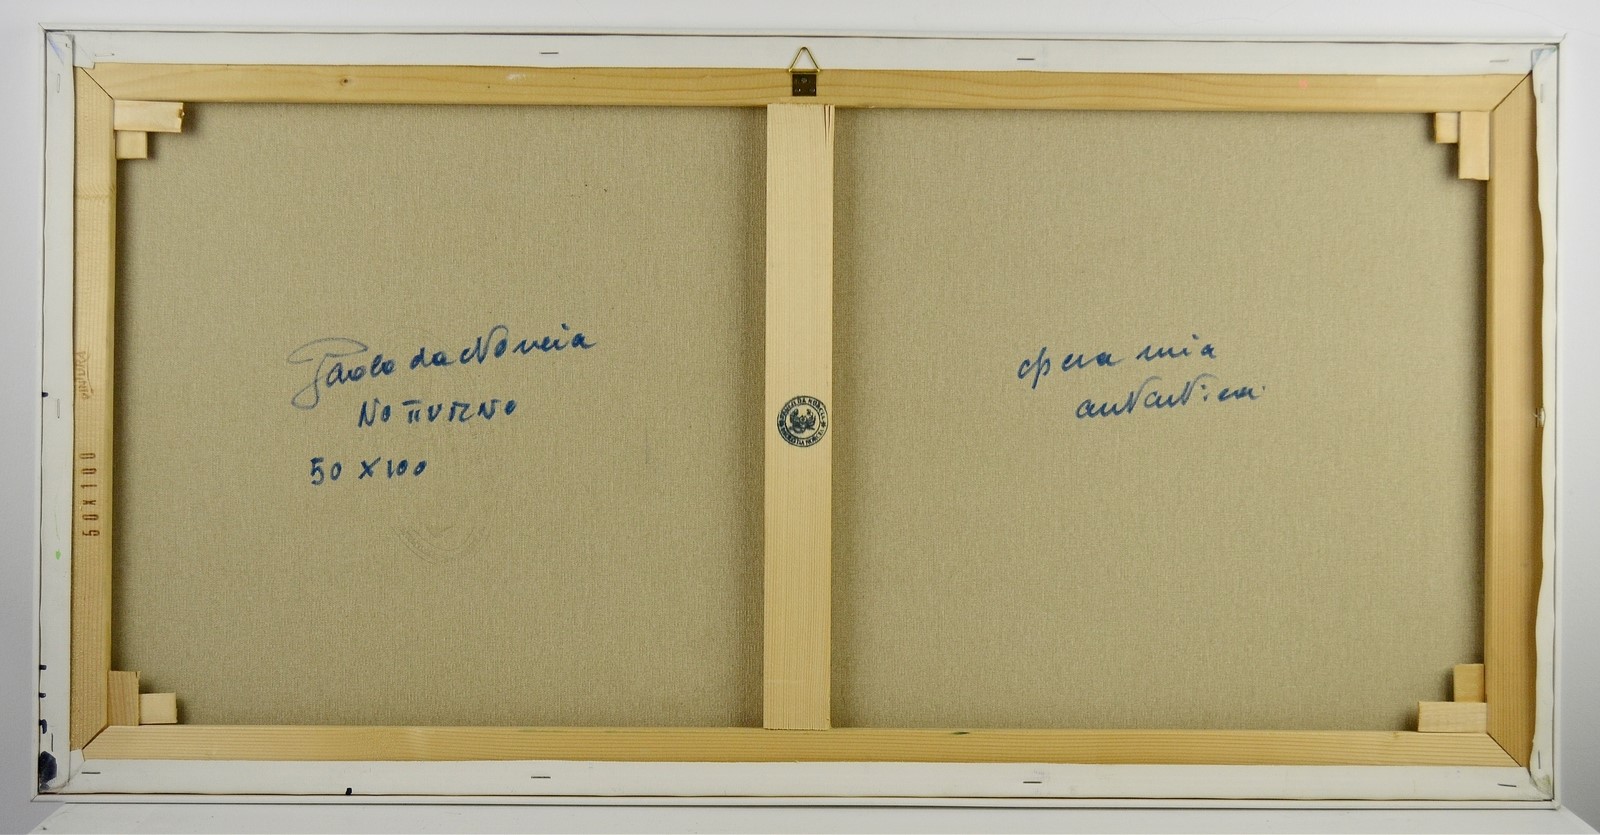 Paolo da Norcia
NOTTURNO
50 x 100
opera mia
autentica
50 X 100